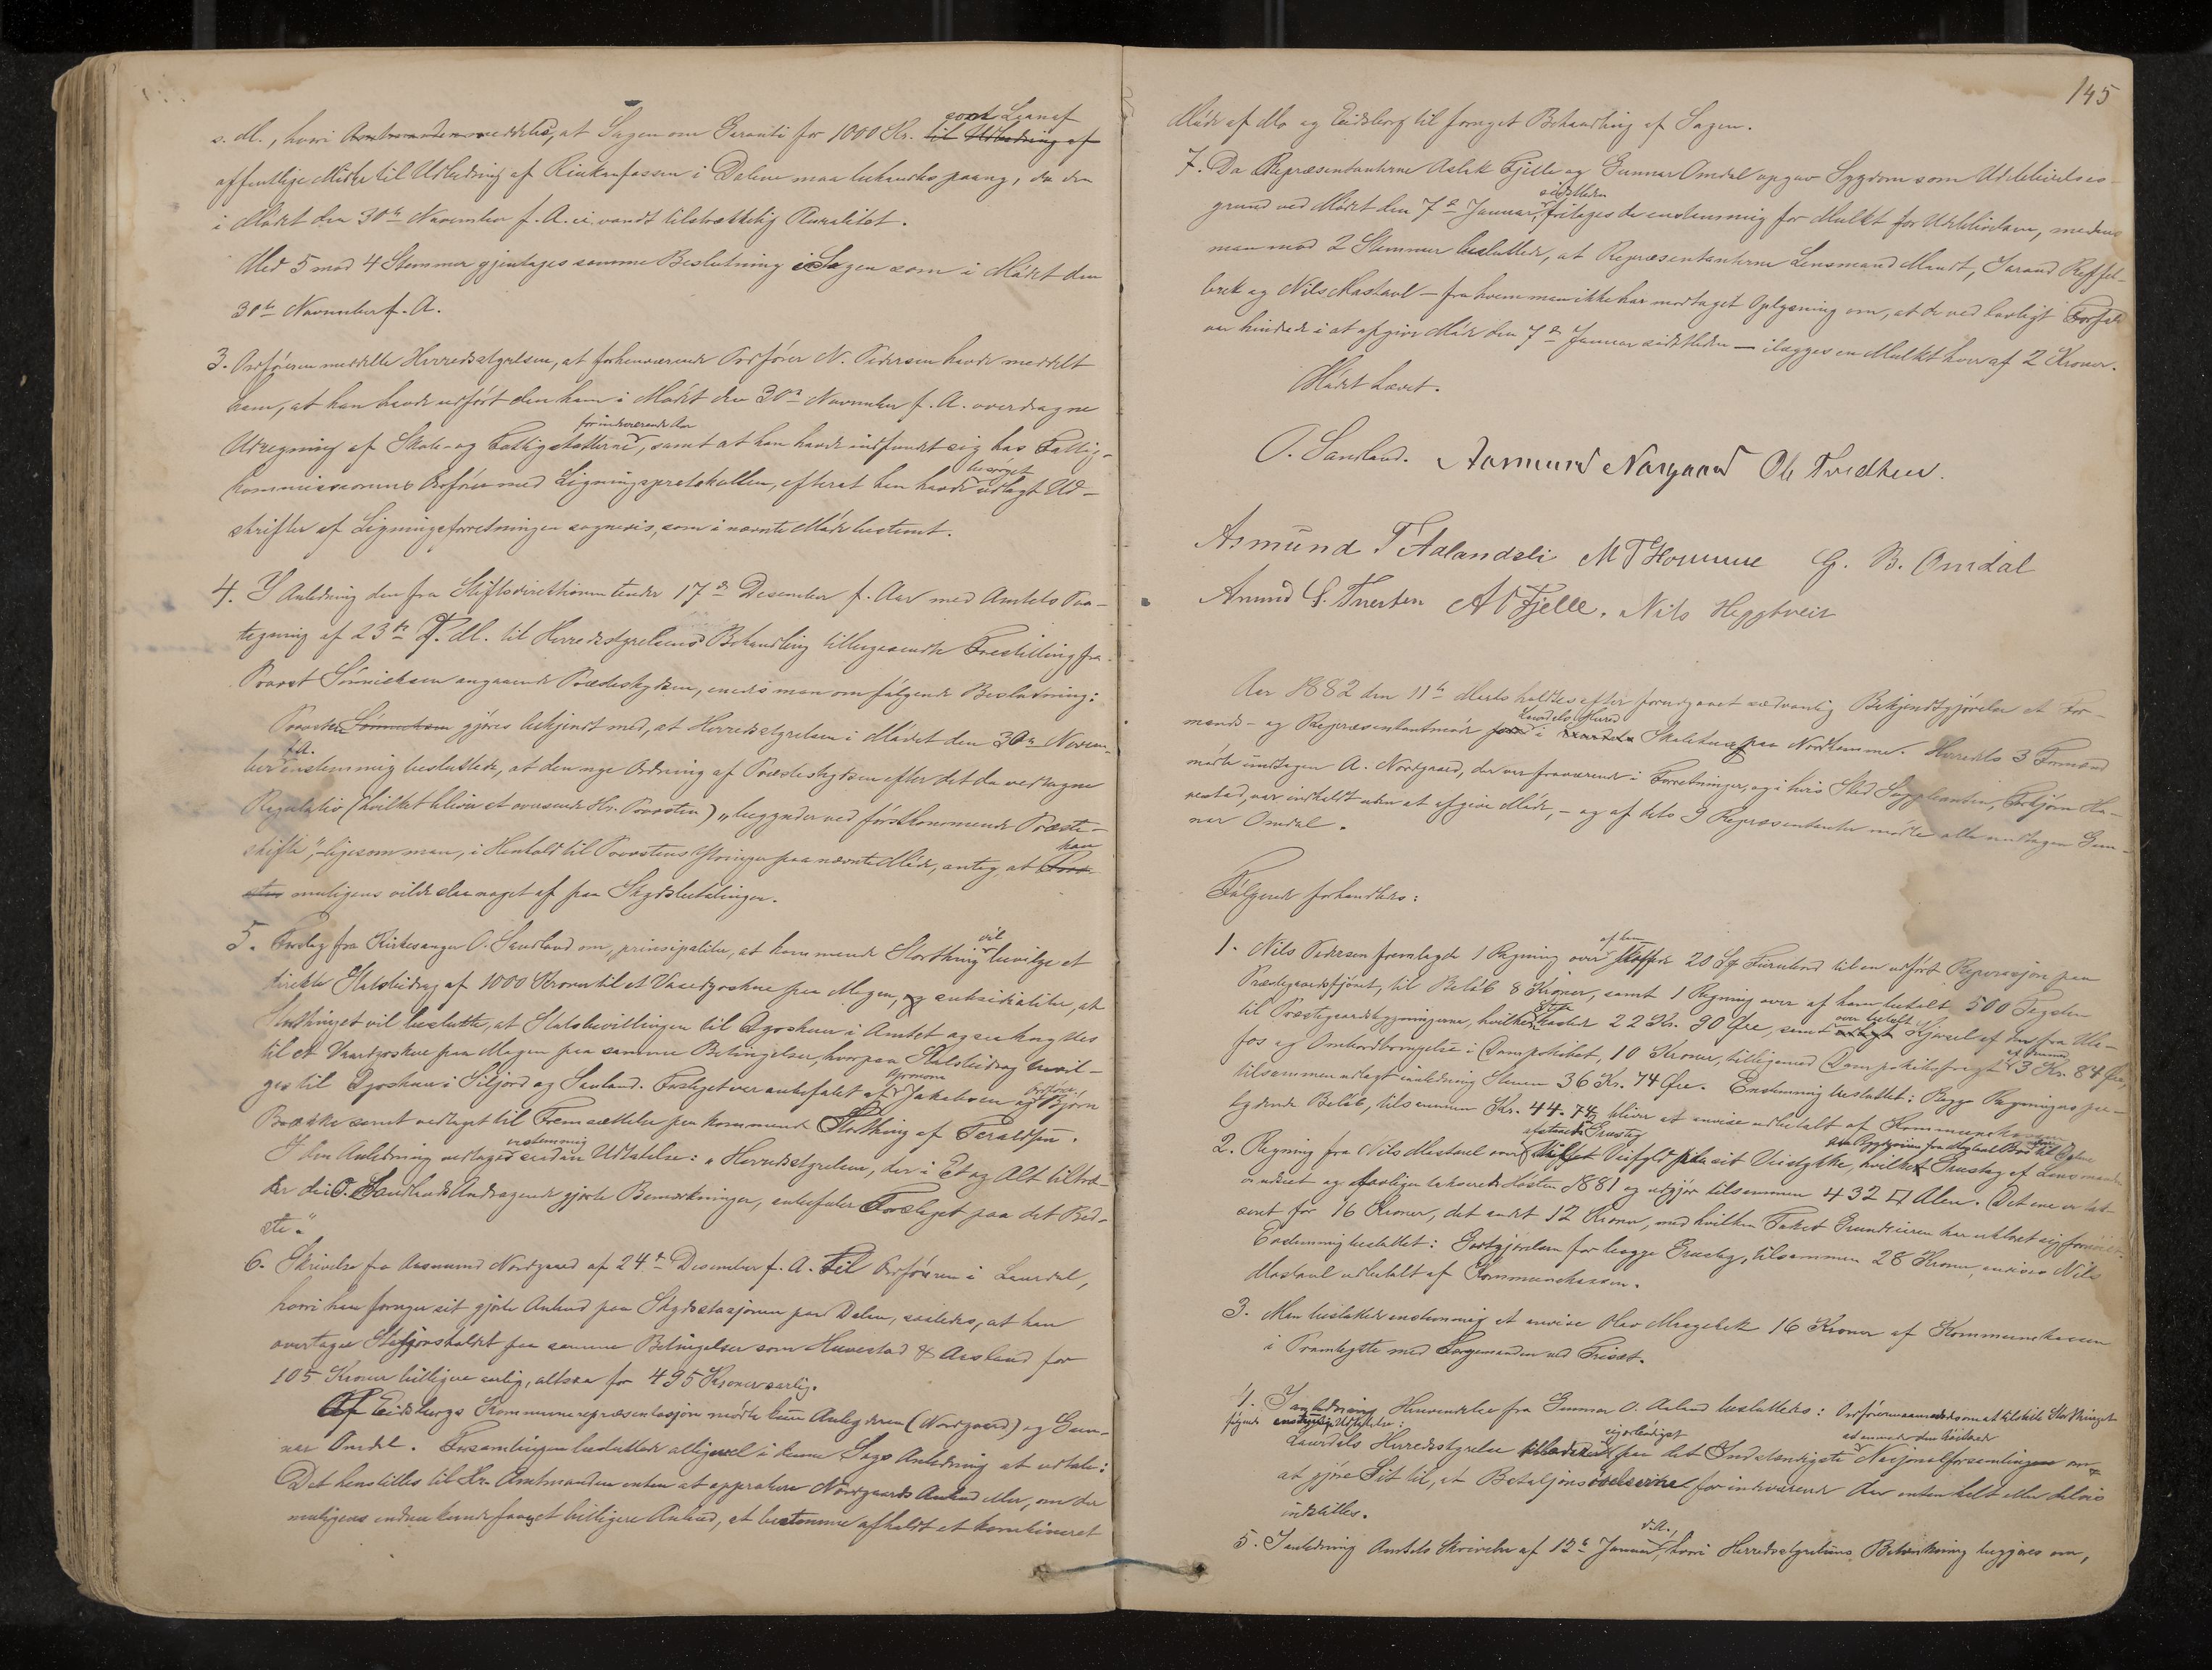 s. M., hvori meddeltes, at Sagen om Garanti for 1000 Kr. samt Laan af
offentlige Midler til Udbedring af Rinkanfossen i Dalene maa behandles paany, da den
i Mødet den 30te November f. A. ei vandt tilstrækkelig Pluralitet.
Med 5 mod 4 Stemmer gjentages samme Beslutning i Sagen som i Mødet den
30te November f. A.
3. Ordføreren meddelte Herredsstyrelsen, at forhenværende Ordfører N. Pedersen havde meddelt
ham, at han havde udført den ham i Mødet den 30te November f. A. overdragne
Udregning af Skole- og Fattigskatterne for indeværende Aar, samt at han havde indfundet sig hos Fattig-
kommissionens Ordfører med Ligningsprotokollen, efterat han havde besørget udlagt Ud-
skrifter af Ligningsforretningen sognevis, som i nævnte Møde bestemt.
4. I Anledning den fra Stiftsdirektionen under 17de Desember f. Aar med Amtets Paa-
tegning af 23de f. M. til Herredsstyrelsens Behandling tilbagesendte Forestilling fra
Provst Sönnicksen angaaende Prædeskydsen, enedes man om følgende Beslutning:
Provsten Sönnicksen gjøres bekjendt med, at Herredsstyrelsen i Mødet den 30te Novem-
ber f. A. enstemmig besluttede, at den nye Ordning af Prædeskydsen efter det da vedtagne
Regulativ (hvilket bliver at oversende Hr. Provsten) „begynder ved førstkommende Præste-
skifte", ligesom man, i Henhold til Provstens Ytringer paa nævnte Møde, antog, at han
muligens vilde slaa noget af paa Skydsbetalingen.
5. Forslag fra Kirkesanger O. Sandland om, prinsipaliter, at kommende Storthing vil bevilge et
direkte Statsbidrag af 1000 Kroner til et Vaardyrskue paa Mogen, og subsidialiter, at
Storthinget vil beslutte, at Statsbevillingen til Dyrskuer i Amtet ogsaa kan ydes
til et Vaardyrskue paa Mogen paa samme Betingelser, hvorpaa Statsbidrag bevil-
ges til Dyrskuer i Siljord og Sauland. Forslaget var anbefalet af Agronom Jakobsen og Björn
Bakke samt vedtaget til Fremsættelse paa kommende Storthing af Taraldsen.
I den Anledning vedtages enstemmig saadan Udtalelse: „Herredsstyrelsen, der i Et og Alt tiltræ-
der de i O. Sandlands Andragende gjorte Bemærkninger, anbefaler Forslaget paa det Bed-
ste."
6. Skrivelse fra Aasmund Nordgaard af 24de Desember f. A. til Ordføreren i Laurdal,
hvori han fornyer sit gjorte Anbud paa Skydsstasjonen paa Dalen, saaledes, at han
overtager Stasjonsholdet paa samme Betingelser som Huvestad & Aasland for
105 Kroner billigere aarlig, altsaa for 495 Kroner aarlig.
Af Eidsborgs Kommunerepræsentasjon mødte kun Anbyderen (Nordgaard) og Gun-
nar Omdal. Forsamlingen besluttede alligevel i denne Sags Anledning at udtale:
Det henstilles til Hr. Amtmanden enten at approbere Nordgaards Anbud eller, om der
muligens endnu kunde faaes et billigere Anbud, at bestemme afholdt et kombineret
145
Møde af Mo og Eidsborg til fornyet Behandling af Sagen.
7. Da Repræsentanterne Aslak Fjelle og Gunnar Omdal opgav Sygdom som Udeblivelses-
grund ved Mødet den 7de Januar sidstleden, fritages de enstemmig for Mulkt for Udeblivelsen, medens
man mod 2 Stemmer besluttede, at Repræsentanterne Lensmand Mandt, Tarand Roffel-
brek og Nils Mastaul – fra hvem man ikke har modtaget Oplysning om, at de ved lovligt Forfald
var hindrede i at afgive Møde den 7de Januar sidstleden – ilægges en Mulkt hver af 2 Kroner.
Mødet hævet.
O. Sandland. Aasmund Norgaard Ole Tvedten.
Asmund T Aalandsli M T Homme G. B. Omdal
Anund G. Tveten A O Fjelle. Nils Heggtveit
Aar 1882 den 11te Marts holdtes efter forudgaaet sædvanlig Bekjendtgjørelse et For-
mands- og Repræsentantmøde for Laurdals Herred i Skolehuset paa Nordhomme. Herredets 3 Formænd
mødte undtagen A. Nordgaard, der var fraværende i Forretninger, og i hvis Sted Suppleanten, Torbjørn Hu-
vestad, var indkaldt uden at afgive Møde, – og af dets 9 Repræsentanter mødte alle undtagen Gun-
nar Omdal.
Følgende forhandledes:
1. Nils Pedersen fremlagde 1 Regning over af ham skaffede 20 Furubord til en udført Reparasjon paa
Præstegaardsfjøset, til Beløb 8 Kroner, samt 1 Regning over af ham betalt 500 Tegelsten
til Præstegaardsbygningerne, hvilke Sten kostede 22 Kr. 90 Øre, samt over betalt Kjørsel af den fra Ule-
fos og Ombordbringelse i Dampskibet, 10 Kroner, tilligemed Dampskibsfragt 3 Kr. 84 Øre,
tilsammen udlagt i anledning Stenen 36 Kr. 74 Øre. Enstemmig besluttet: Begge Regningers paa-
lydende Beløb, tilsammen Kr. 44.74, bliver at anvise udbetalt af Kommunekassen.
2. Regning fra Nils Mastaul over Grustag paa sit Veistykke, hvilket Grustag af Lensmanden
vurderet og lovligen takseret Høsten 1881 og udgjør tilsammen 432 □ Alen. Det ene er tak-
seret for 16 Kroner, det andet 12 Kroner, med hvilken Takst Grundeieren har erklæret sig fornøiet.
Enstemmig besluttet: Godtgjørelsen for begge Grustag, tilsammen 28 Kroner, anvises Nils
Mastaul udbetalt af Kommunekassen.
3. Man besluttede enstemmig at anvise Olav Mægebek 16 Kroner af Kommunekassen
i Framlyste med Borgemanden ved Friset.
4. I anledning Henvendelse fra Gunnar O. Aaland besluttedes: Ordføreren anmodes om at tilstille Storthinget
følgende enstemmige Udtalelse:
Laurdals Herredsstyrelse tillader sig paa det Indstændigste at anmode den høitærede Nasjonalforsamling om
at gjøre Sit til, at Bataljonsøvelserne for indeværende Aar enten helt eller delvis
indstilles.
5. I anledning Amtets Skrivelse af 12te Januar d. A., hvori Herredsstyrelsens Betænkning begjæres om,